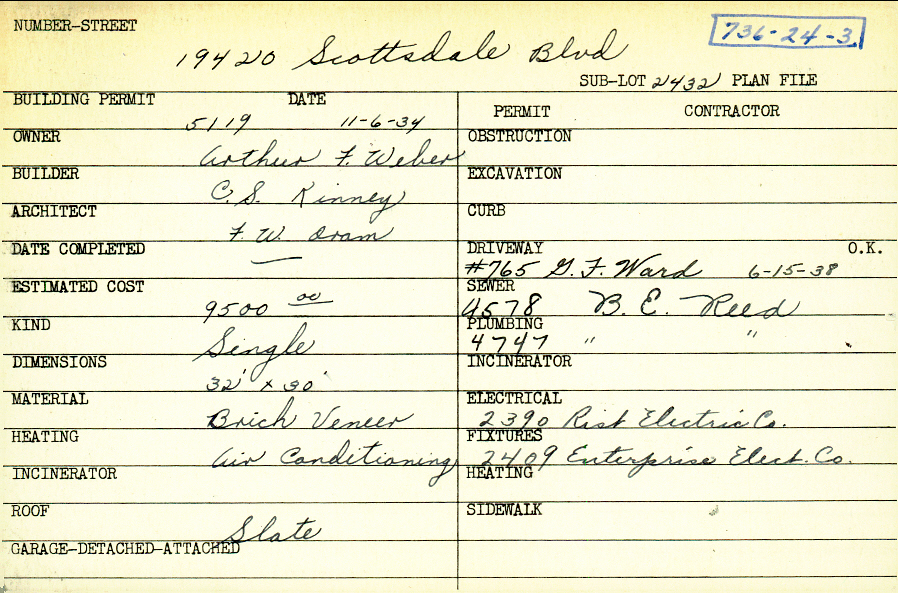 NUMBER-STREET
736-24-3
19420 Scottsdale Blvd
SUB-LOT 2432 PLAN FILE
BUILDING PERMIT DATE
5119 11-6-34
OWNER
Arthur F. Weber
BUILDER
C. S. Kinney
ARCHITECT
F. W. Dram
DATE COMPLETED
—
ESTIMATED COST
9500 00
KIND
Single
DIMENSIONS
32' x 30'
MATERIAL
Brick Veneer
HEATING
Air Conditioning
INCINERATOR
ROOF
Slate
GARAGE-DETACHED-ATTACHED
PERMIT CONTRACTOR
OBSTRUCTION
EXCAVATION
CURB
DRIVEWAY O.K.
#765 G. F. Ward 6-15-38
SEWER
4578 B. E. Reed
PLUMBING
4747 " "
INCINERATOR
ELECTRICAL
2390 Rist Electric Co.
FIXTURES
2409 Enterprise Elect. Co.
HEATING
SIDEWALK